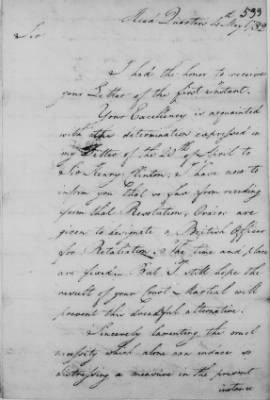 533
Head Quarters 4th May 1782
Sir
I had the honor to receive
your Letter of the first instant.
Your Excellency is acquainted
with the determination expressed in
my Letter of the 21st of April to
Sir Henry Clinton, I have now to
inform you that so far from receding
from that Resolution, Orders are
given to designate a British Officer
for Retaliation. The time and place
are fixed. But I still hope the
result of your Court Martial will
prevent this dreadful alternative.
Sincerely lamenting the cruel
necessity which alone can induce so
distressing a measure in the present
instance